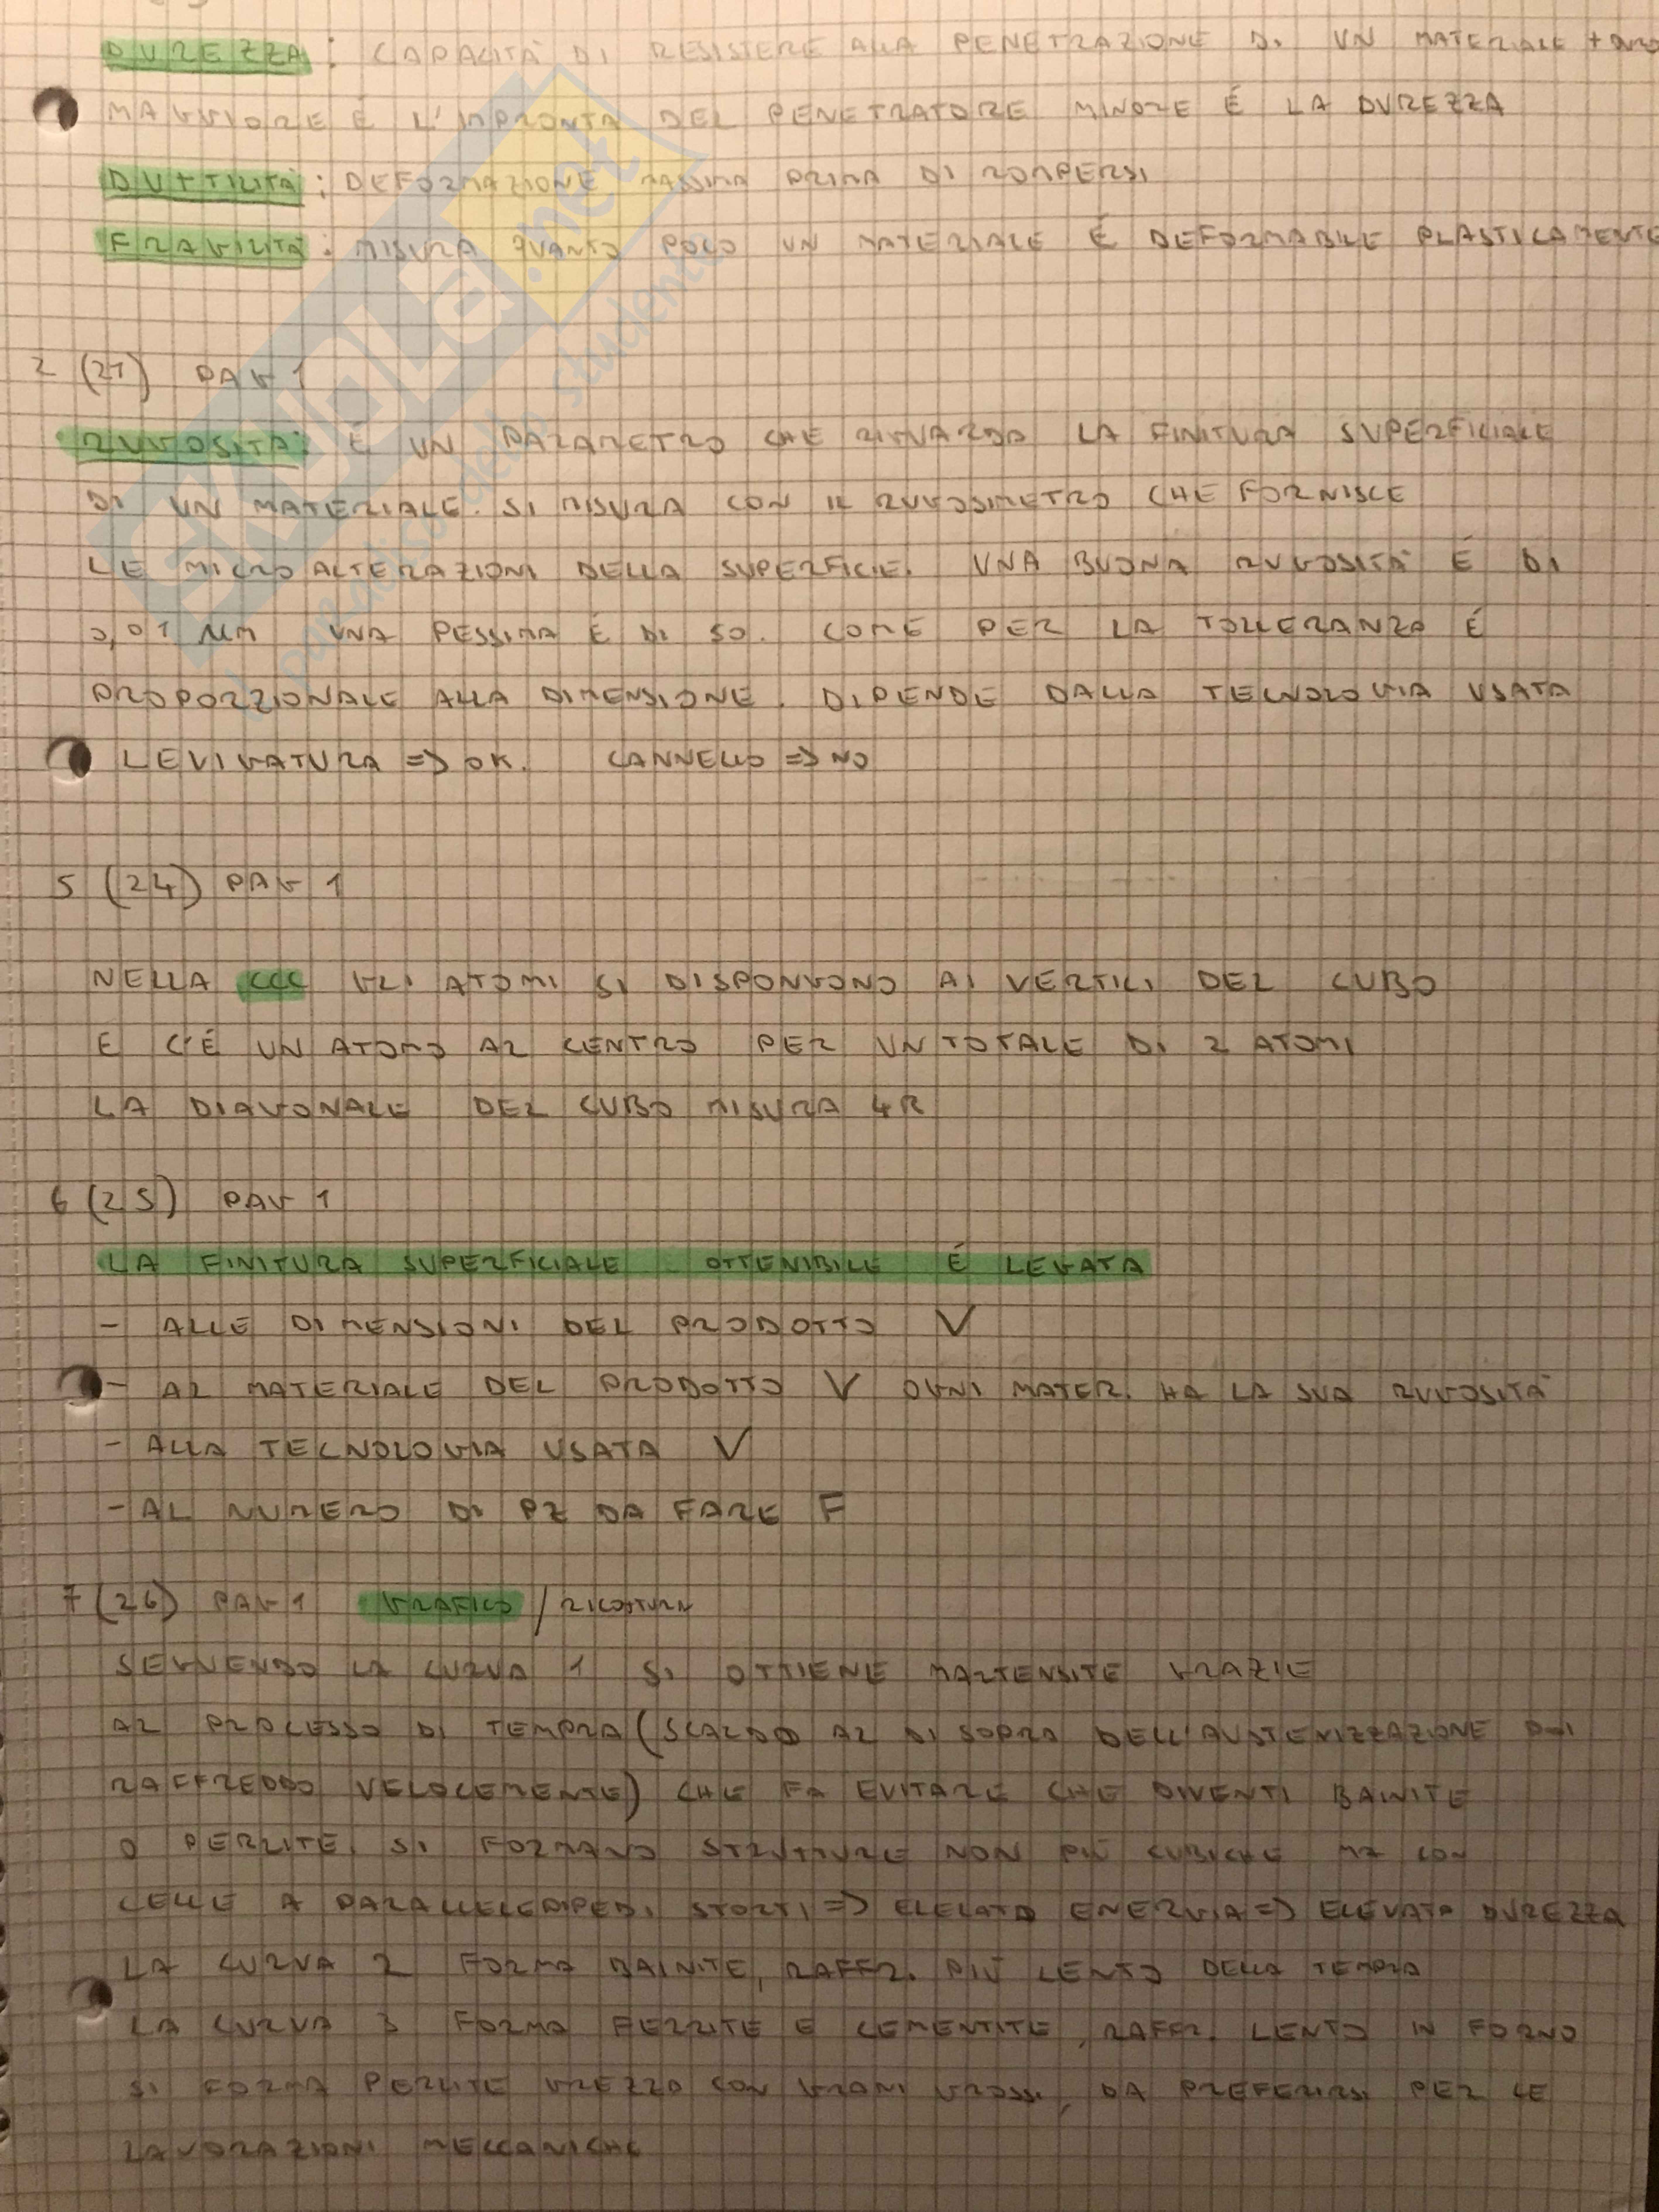 DUREZZA: CAPACITÀ DI RESISTERE ALLA PENETRAZIONE DI UN MATERIALE + DURO
MAGGIORE É L'IMPRONTA DEL PENETRATORE MINORE É LA DUREZZA
DUTTILITÀ: DEFORMAZIONE MASSIMA PRIMA DI ROMPERSI
FRAGILITÀ: MISURA QUANTO POCO UN MATERIALE É DEFORMABILE PLASTICAMENTE
2 (21) PAG 1
RUGOSITÀ: É UN PARAMETRO CHE RIGUARDA LA FINITURA SUPERFICIALE
DI UN MATERIALE. SI MISURA CON IL RUGOSIMETRO CHE FORNISCE
LE MICRO ALTERAZIONI DELLA SUPERFICIE. UNA BUONA RUGOSITÀ É DI
0,01 µm UNA PESSIMA É DI 50. COME PER LA TOLLERANZA É
PROPORZIONALE ALLA DIMENSIONE. DIPENDE DALLA TECNOLOGIA USATA
LEVIGATURA => OK. CANNELLO => NO
5 (24) PAG 1
NELLA CCC GLI ATOMI SI DISPONGONO AI VERTICI DEL CUBO
E C'É UN ATOMO AL CENTRO PER UN TOTALE DI 2 ATOMI
LA DIAGONALE DEL CUBO MISURA 4R
6 (25) PAG 1
LA FINITURA SUPERFICIALE OTTENIBILE É LEGATA
- ALLE DIMENSIONI DEL PRODOTTO V
- AL MATERIALE DEL PRODOTTO V OGNI MATER. HA LA SUA RUGOSITÀ
- ALLA TECNOLOGIA USATA V
- AL NUMERO DI PZ DA FARE F
7 (26) PAG 1 GRAFICO / RICOTTURA
SEGUENDO LA CURVA 1 SI OTTIENE MARTENSITE GRAZIE
AL PROCESSO DI TEMPRA (SCALDO AL DI SOPRA DELL'AUSTENIZZAZIONE POI
RAFFREDDO VELOCEMENTE) CHE FA EVITARE CHE DIVENTI BAINITE
O PERLITE. SI FORMANO STRUTTURE NON PIÙ CUBICHE MA CON
CELLE A PARALLELEPIPEDI STORTI => ELEVATA ENERGIA => ELEVATA DUREZZA
LA CURVA 2 FORMA BAINITE, RAFFR. PIÙ LENTO DELLA TEMPRA
LA CURVA 3 FORMA FERRITE E CEMENTITE, RAFFR. LENTO IN FORNO
SI FORMA PERLITE GREZZA CON GRANI GROSSI, DA PREFERIRSI PER LE
LAVORAZIONI MECCANICHE
SKUOLA.net
il paradiso dello studente